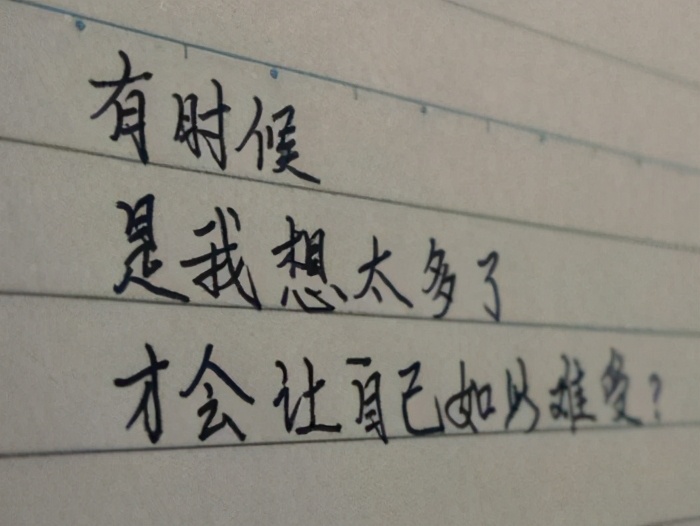 有时候
是我想太多了
才会让自己如此难受？